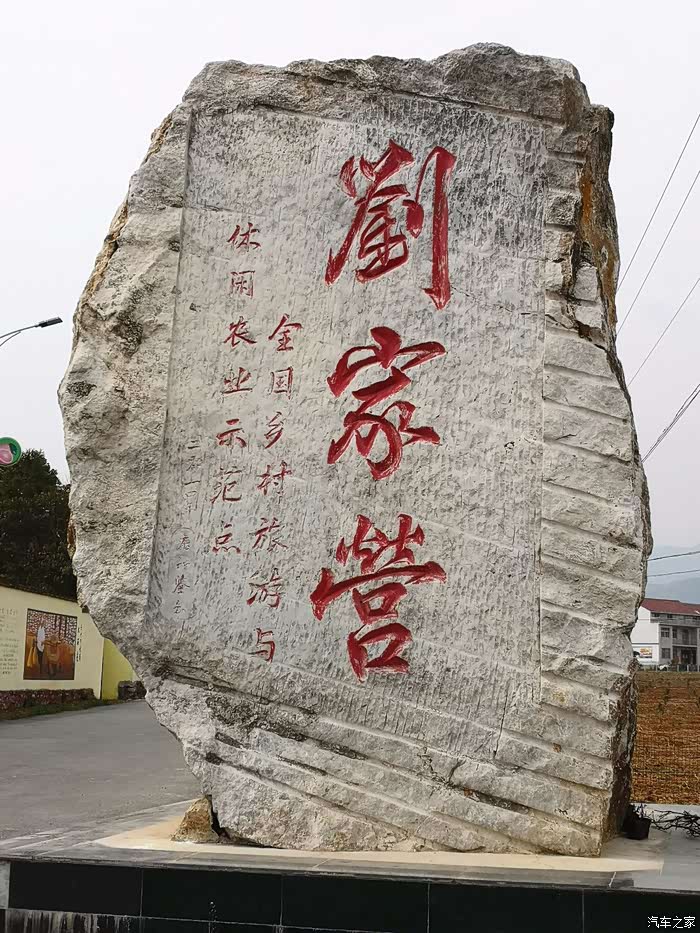 劉家营
全国乡村旅游与
休闲农业示范点
汽车之家